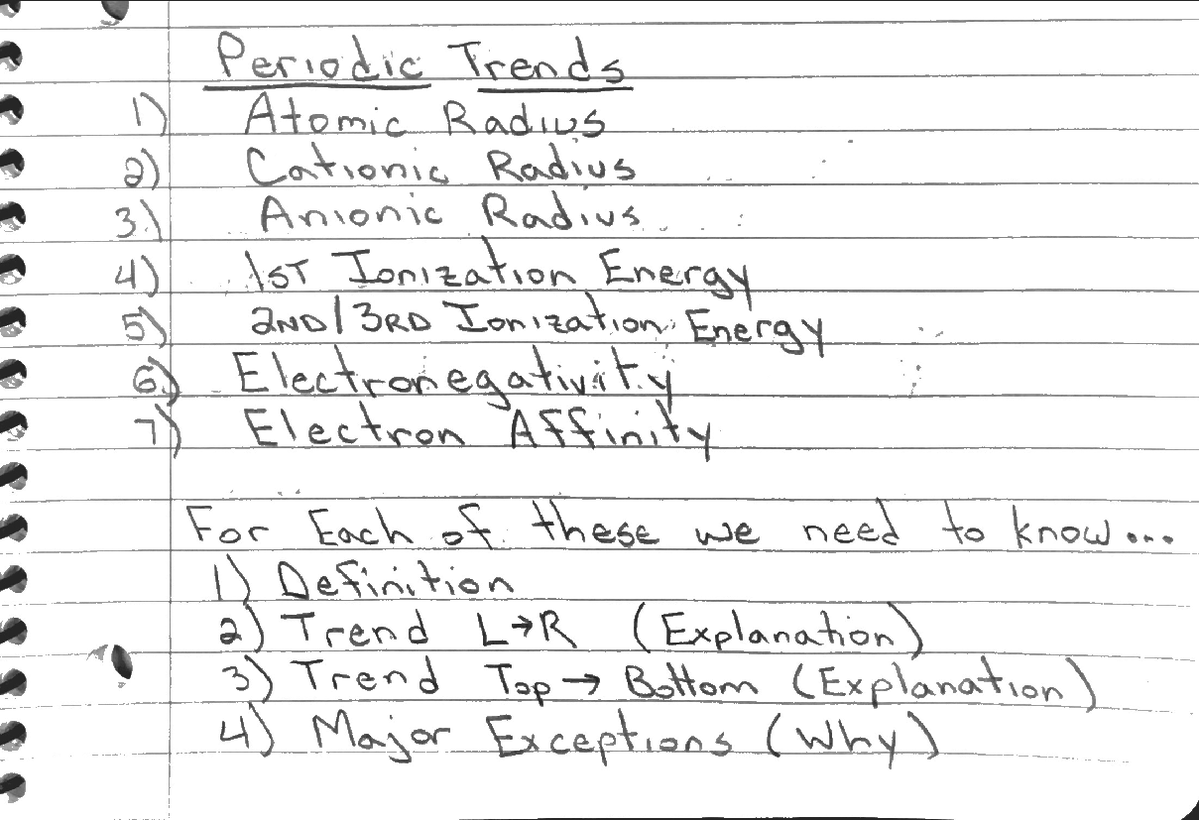 Periodic Trends
1) Atomic Radius
2) Cationic Radius
3) Anionic Radius
4) 1ST Ionization Energy
5) 2ND/3RD Ionization Energy
6) Electronegativity
7) Electron Affinity
For Each of these we need to know...
1) Definition
2) Trend L→R (Explanation)
3) Trend Top → Bottom (Explanation)
4) Major Exceptions (Why)